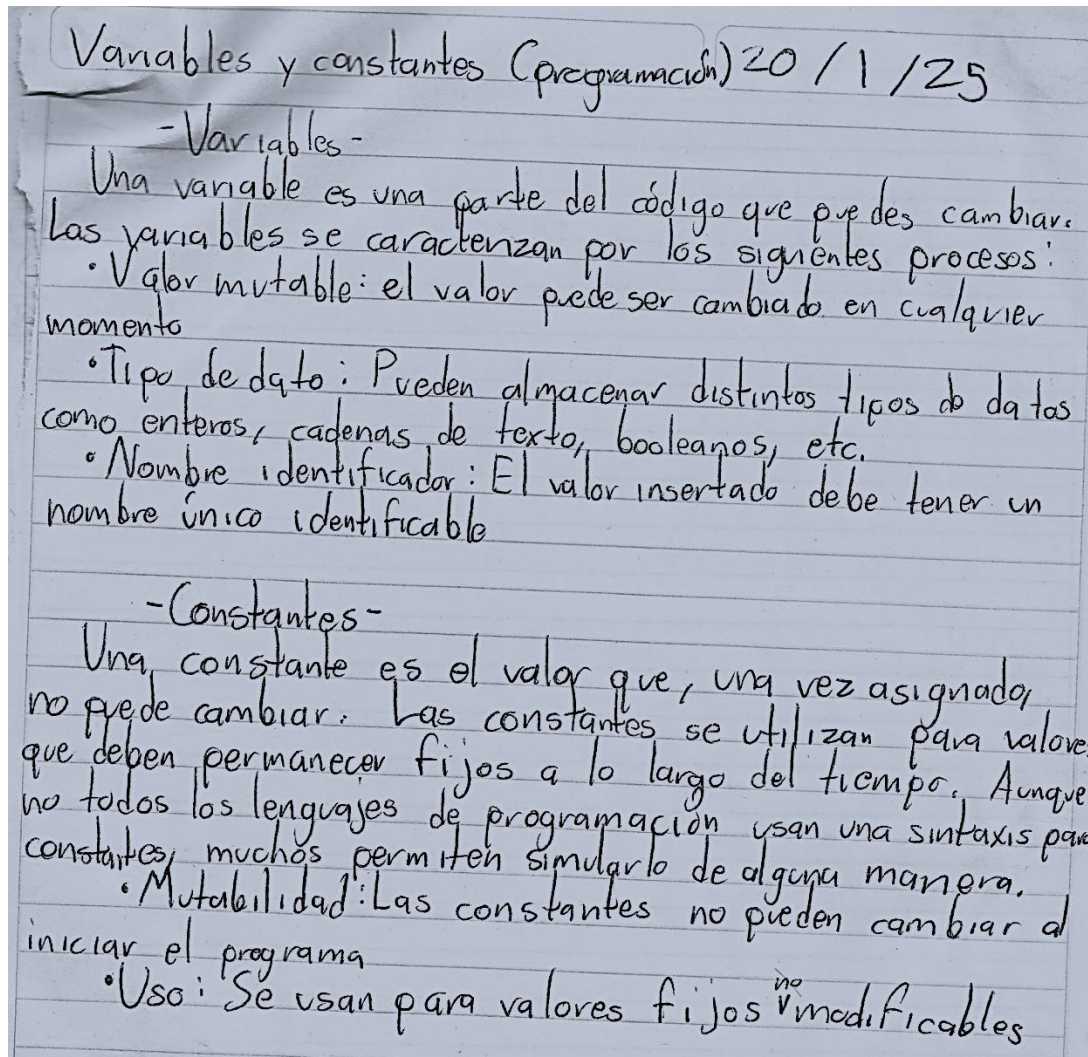 Variables y constantes (programación) 20/1/25
-Variables-
Una variable es una parte del código que puedes cambiar.
Las variables se caracterizan por los siguientes procesos:
•Valor mutable: el valor puede ser cambiado en cualquier
momento
•Tipo de dato: Pueden almacenar distintos tipos de datos
como enteros, cadenas de texto, booleanos, etc.
•Nombre identificador: El valor insertado debe tener un
nombre único identificable
-Constantes-
Una constante es el valor que, una vez asignado,
no puede cambiar. Las constantes se utilizan para valores
que deben permanecer fijos a lo largo del tiempo. Aunque
no todos los lenguajes de programación usan una sintaxis para
constantes, muchos permiten simularlo de alguna manera.
•Mutabilidad: Las constantes no pueden cambiar al
iniciar el programa
•Uso: Se usan para valores fijos no modificables